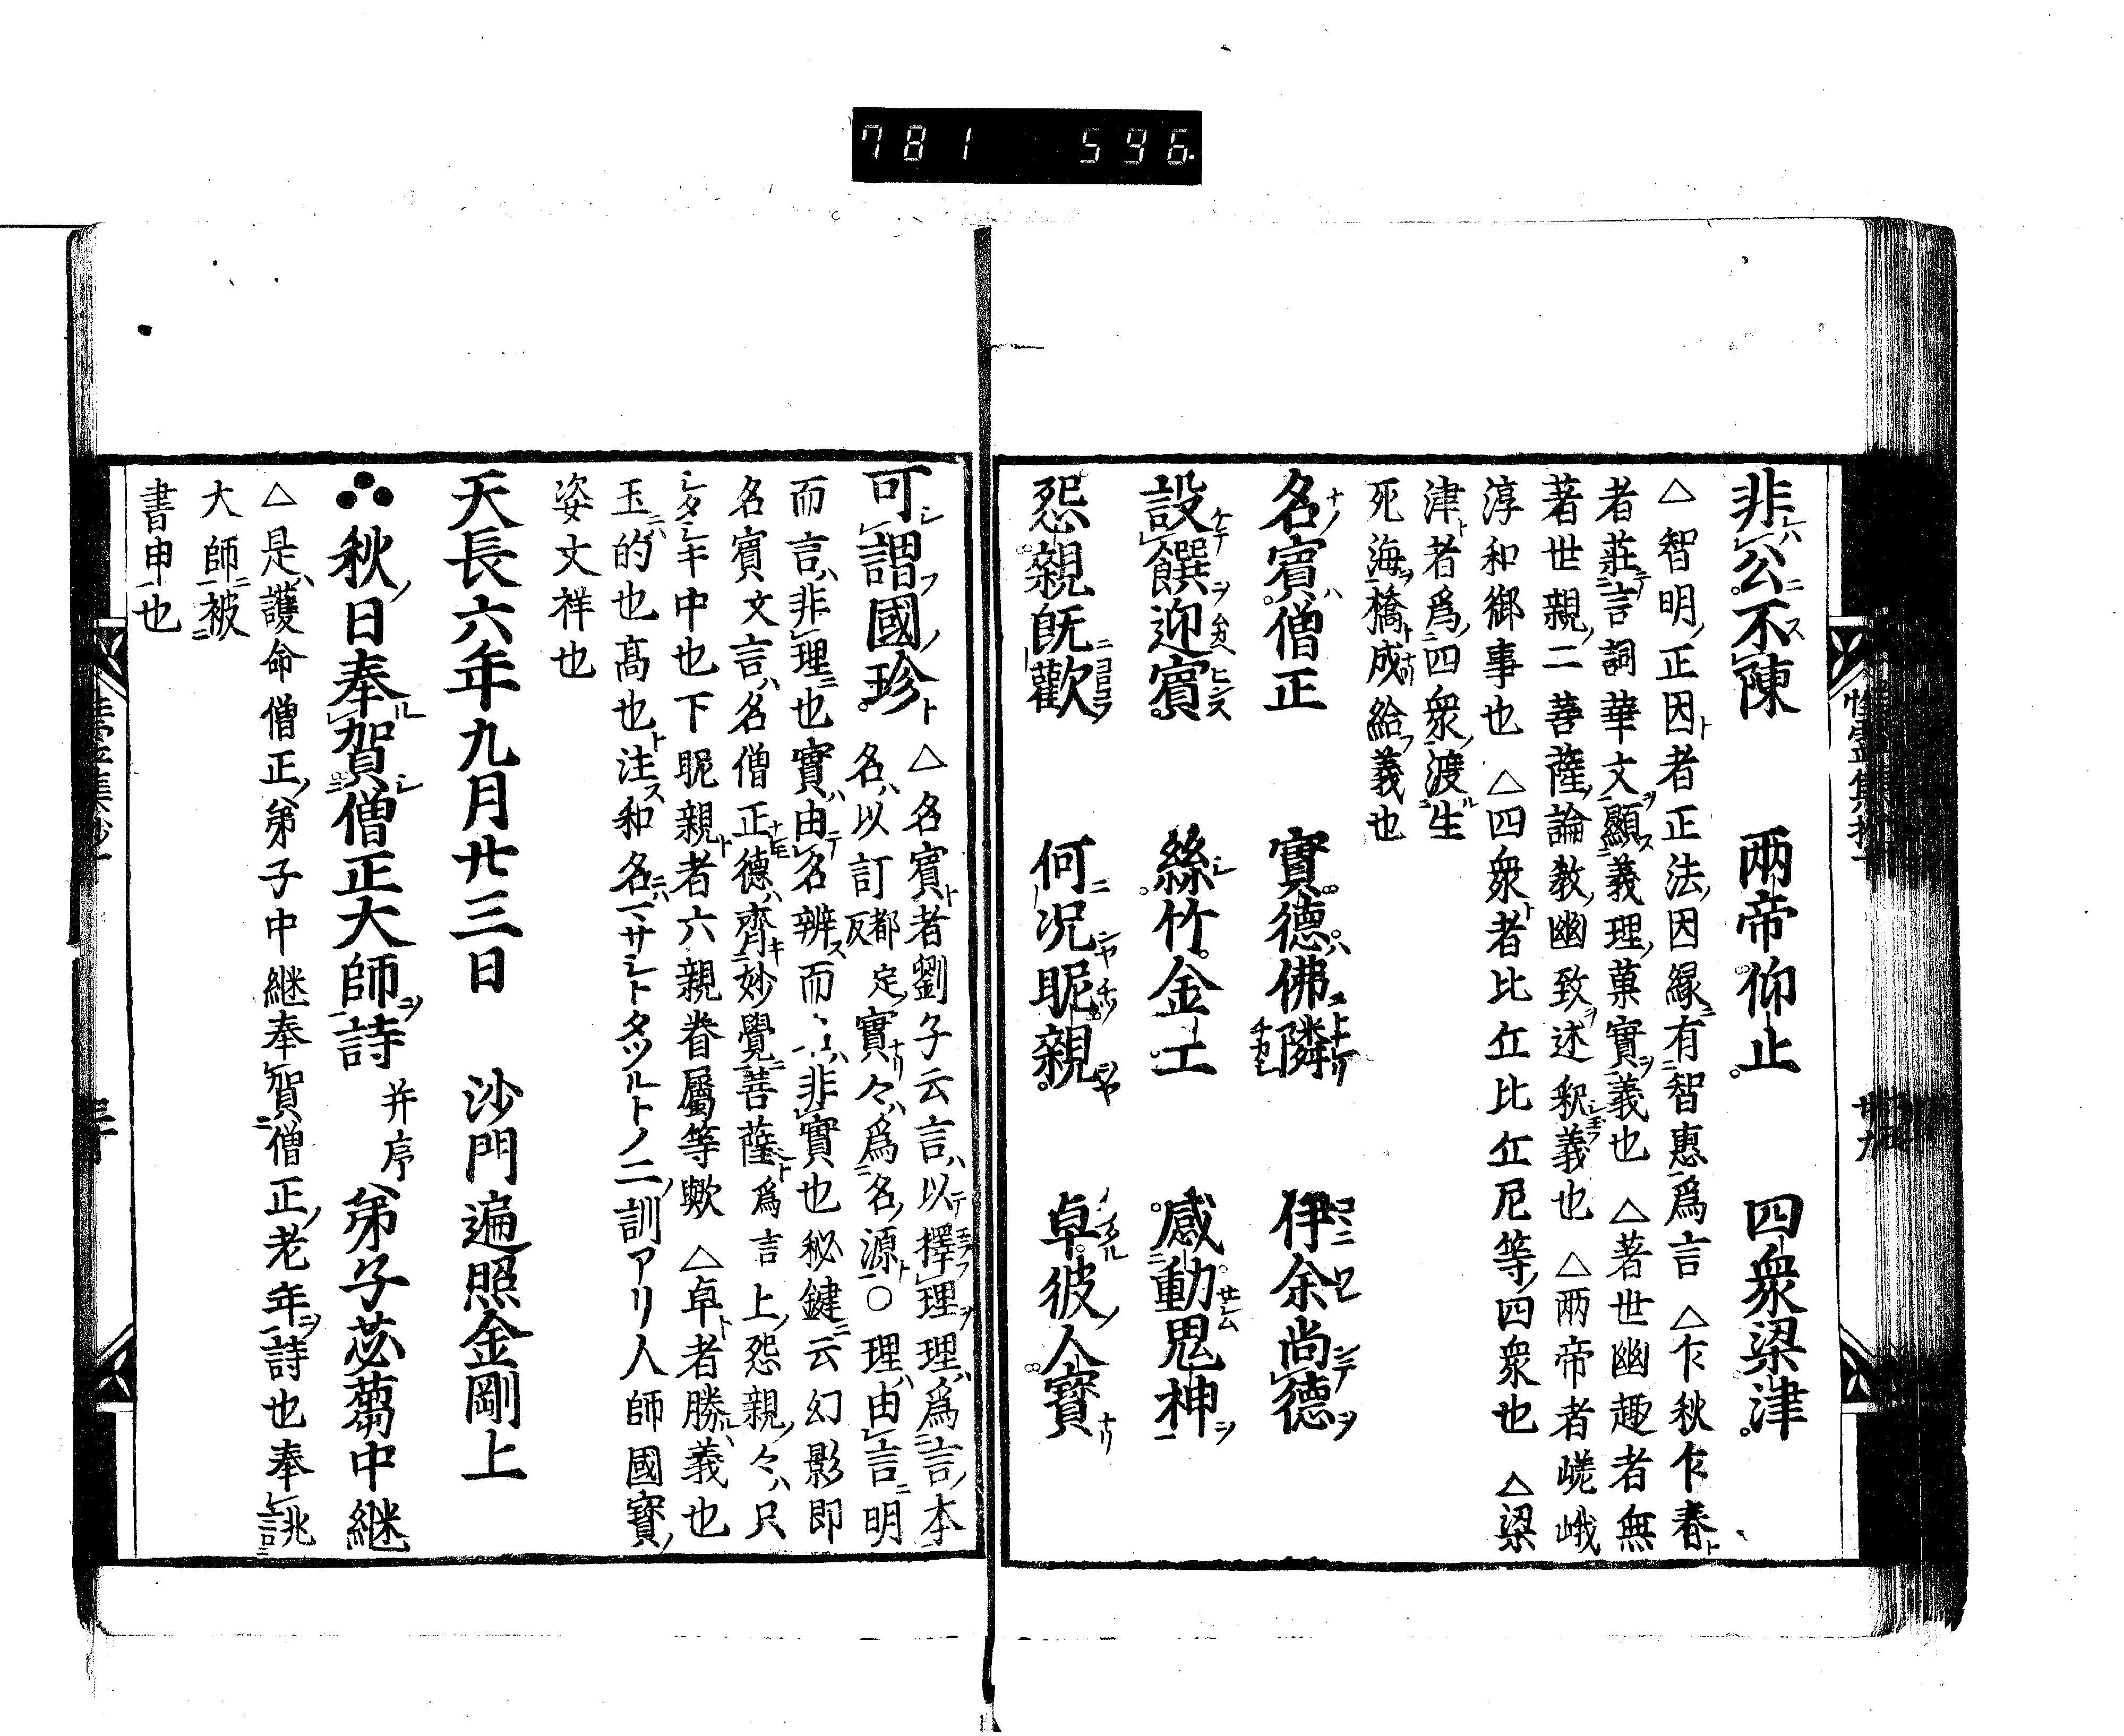 781 596
非公不陳 兩帝仰止 四衆梁津
△智明正因者正法因縁有智惠爲言△乍秋乍春
者莊言詞華文顯義理菓實義也△著世幽趣者無
著世親二菩薩論教幽致述釈義也△兩帝者嵯峨
淳和御事也△四衆者比丘比丘尼等四衆也△梁
津者爲四衆渡生
死海橋成給義也
名賓僧正 實德佛隣 伊余尚德
設饌迎賓 絲竹金工 感動鬼神
怨親既歡 何况昵親 卓彼人寶
可謂國珍 △名賓者劉子云言以擇理理爲言本
名以訂都定反實實々爲名源○理由言明
而言非理也實由名辨而々々非實也秘鍵云幻影即
名賓文言名僧正德齊妙覺菩薩爲言上怨親々只
シタシキ中也下昵親者六親眷屬等歟△卓者勝義也
玉的也高也注和名ニハサシトタツルトノ二訓アリ人師國寶
姿文祥也
天長六年九月廿三日 沙門遍照金剛上
秋日奉賀僧正大師詩 并序 弟子苾蒭中継
△是護命僧正弟子中継奉賀僧正老年詩也奉誂
大師被
書申也